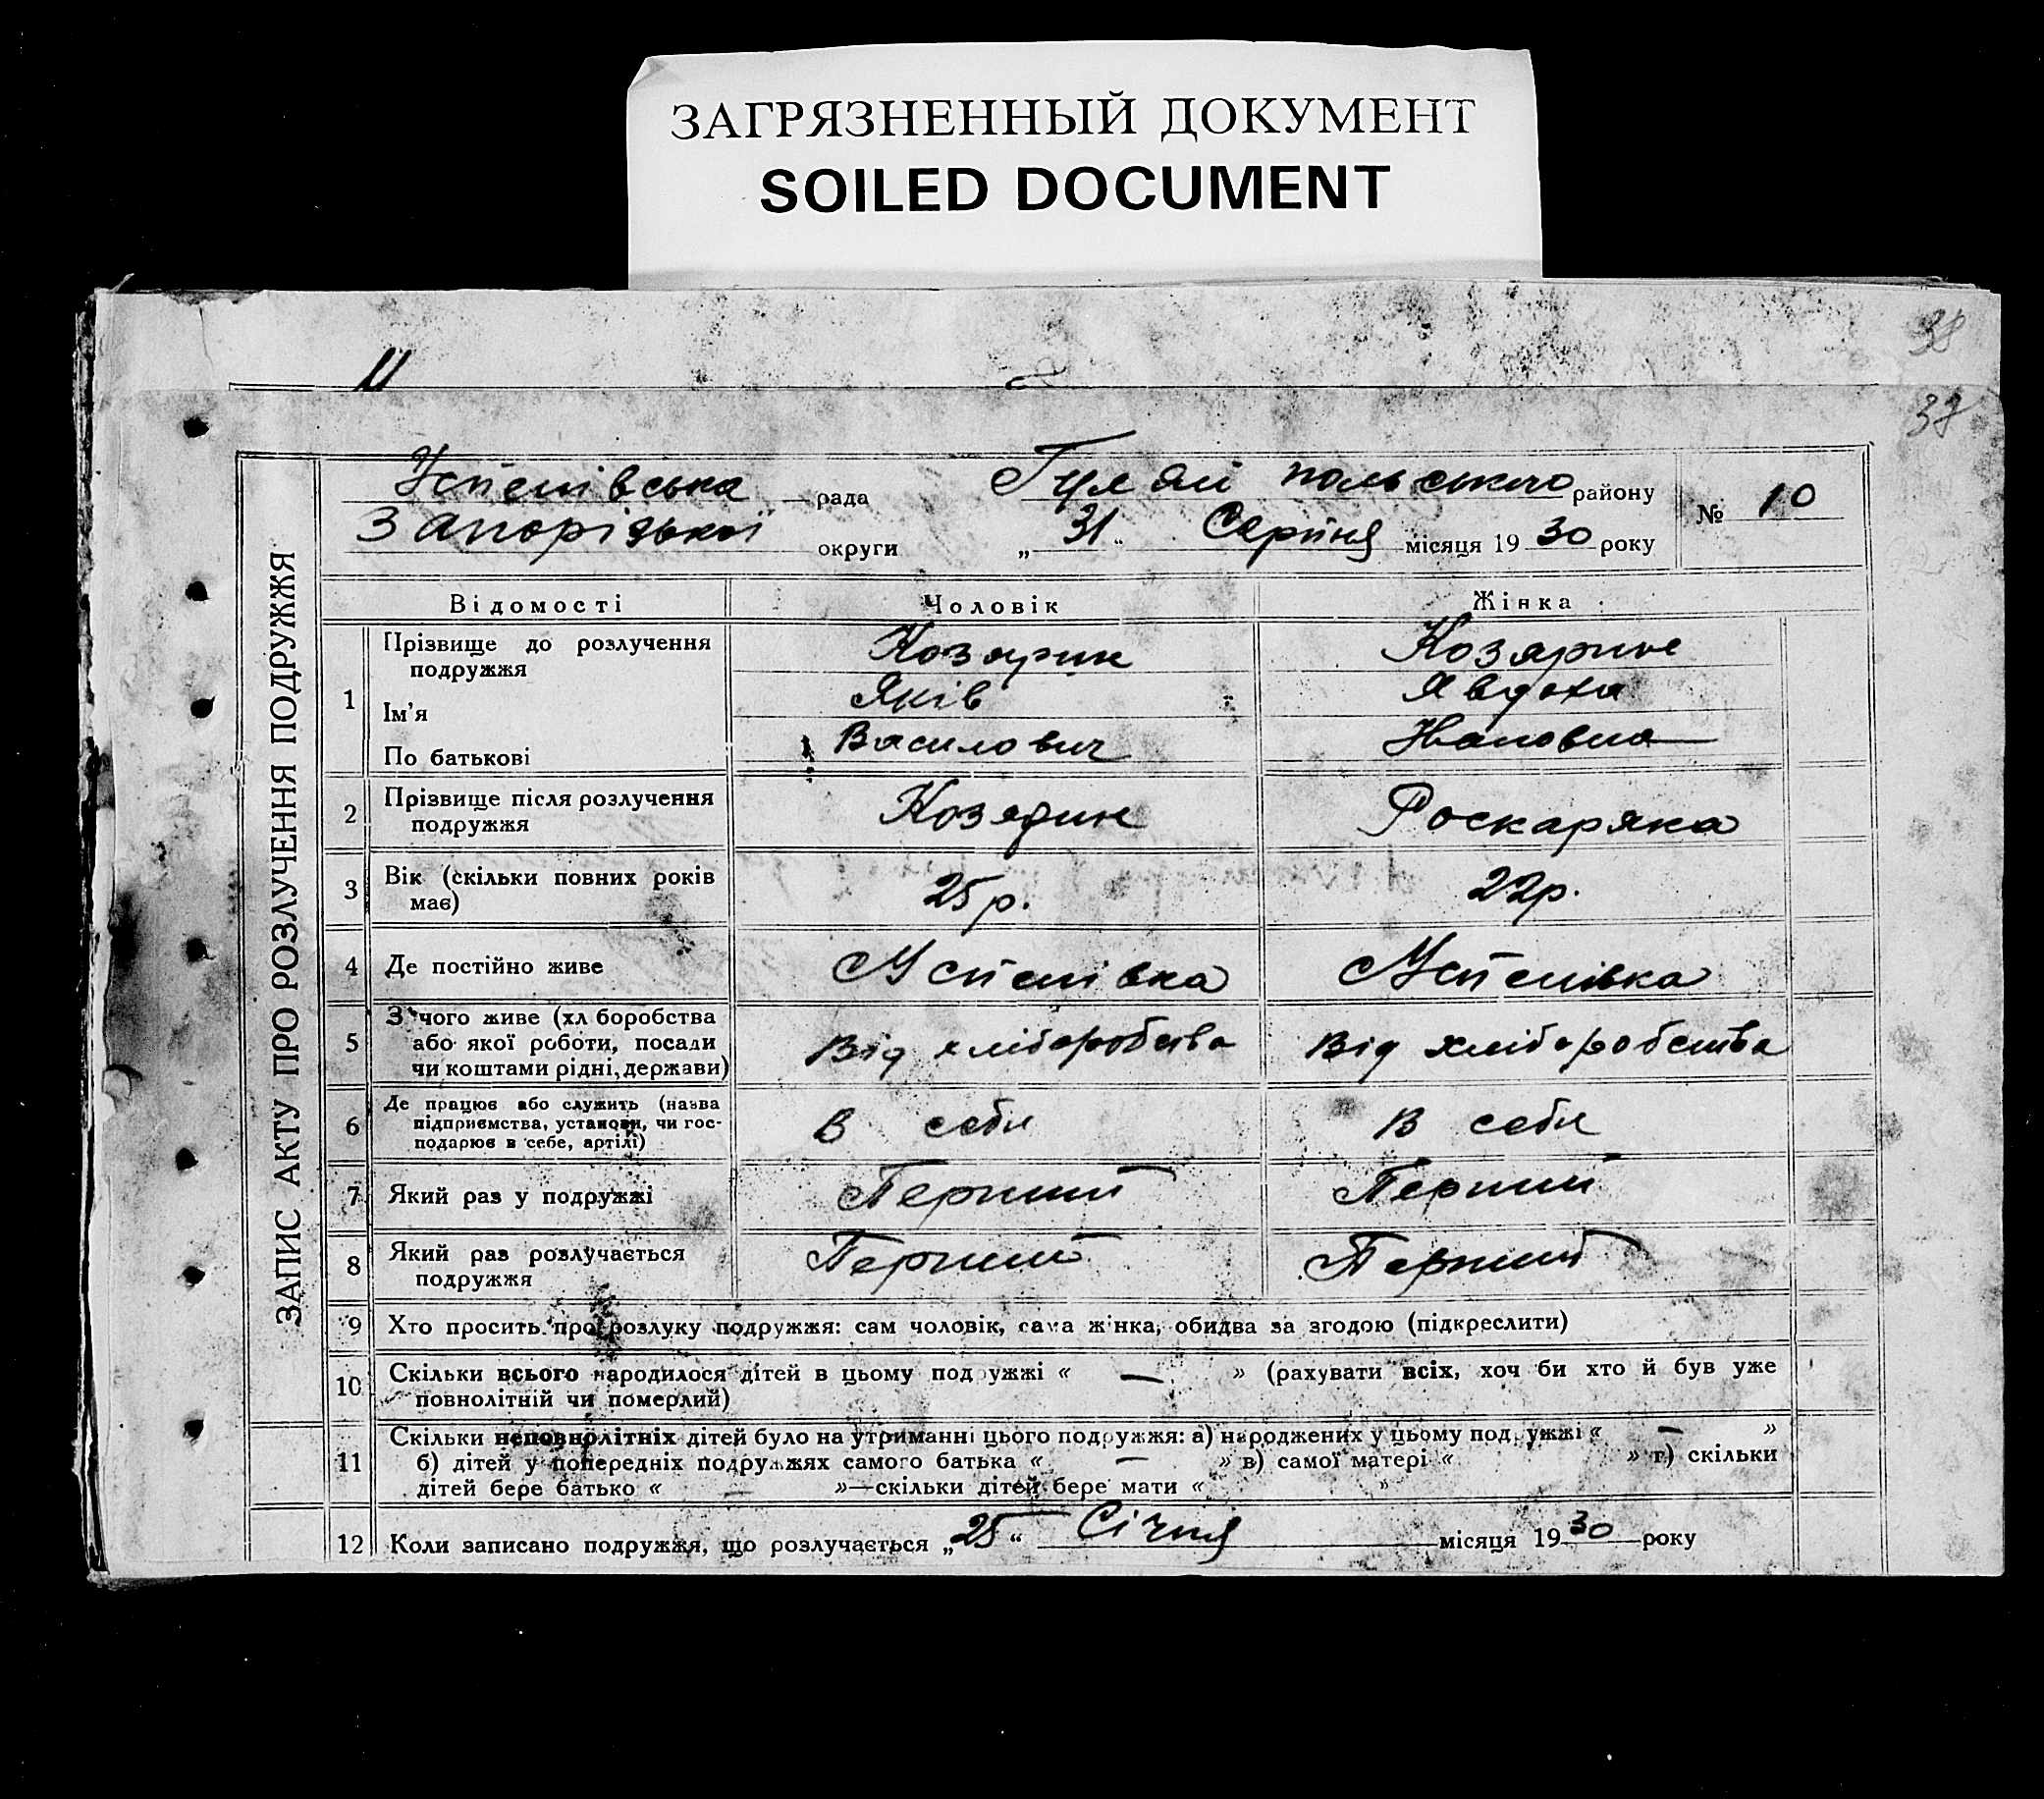 ЗАГРЯЗНЕННЫЙ ДОКУМЕНТ
SOILED DOCUMENT
38
37
ЗАПИС АКТУ ПРО РОЗЛУЧЕННЯ ПОДРУЖЖЯ
Успенівська рада Гуляй польського району № 10
Запорізької округи „ 31 “ Серпня місяця 19 30 року
Відомості Чоловік Жінка
1 Прізвище до розлучення подружжя Козярин Козярине
Ім'я Яків Явдоха
По батькові Василович Івановна
2 Прізвище після розлучення подружжя Козярин Роскаряка
3 Вік (скільки повних років має) 25 р. 22 р.
4 Де постійно живе Успенівка Успенівка
5 З чого живе (хл боробства або якої роботи, посади чи коштами рідні, держави) Від хліборобства Від хліборобства
6 Де працює або служить (назва підприємства, установи, чи господарює в себе, артілі) В себе В себе
7 Який раз у подружжі Перший Перший
8 Який раз розлучається подружжя Перший Перший
9 Хто просить про розлуку подружжя: сам чоловік, сама жінка, обидва за згодою (підкреслити)
10 Скільки всього народилося дітей в цьому подружжі « — » (рахувати всіх, хоч би хто й був уже
повнолітній чи померлий)
11 Скільки неповнолітніх дітей було на утриманні цього подружжя: а) народжених у цьому подружжі « — »
б) дітей у попередніх подружжях самого батька « — » в) самої матері « » г) скільки
дітей бере батько « — »—скільки дітей бере мати « »
12 Коли записано подружжя, що розлучається „ 25 “ Січня місяця 19 30 року